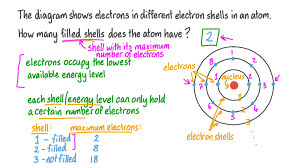 The diagram shows electrons in different electron shells in an atom.
How many filled shells does the atom have? 2
shell with its maximum
number of electrons
electrons occupy the lowest
available energy level
each shell/energy level can only hold
a certain number of electrons
shell: maximum electrons:
1 - filled 2
2 - filled 8
3 - not filled 18
electrons
nucleus
electron shells
1
2
3